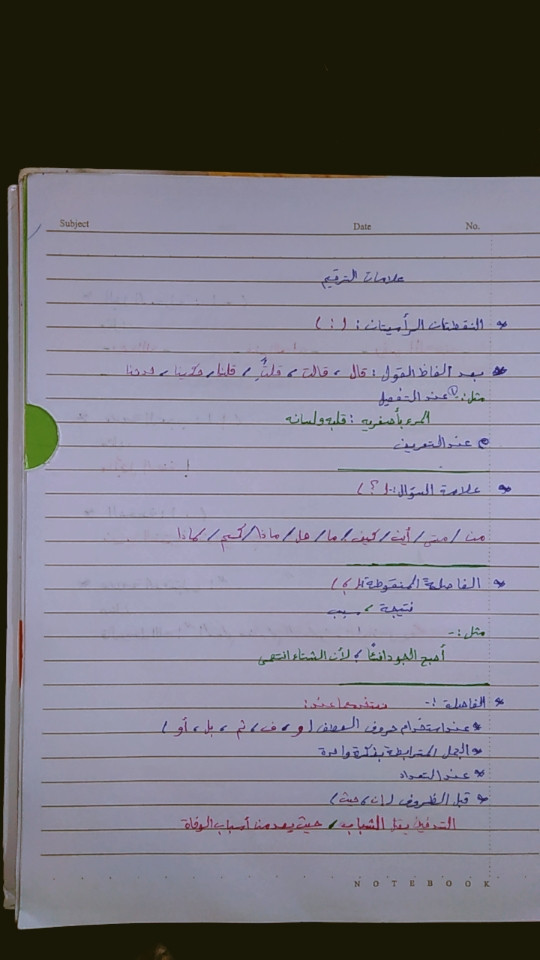 Subject Date No.
علامات الترقيم
* النقطتان الرأسيتان: ( : )
* بعد ألفاظ القول: قال، قالت، قلتُ، قلنا،
مثل:- ① عند التفصيل
المرء بأصغريه: قلبه ولسانه
② عند التعريف
* علامة السؤال:- ( ؟ )
من / متى / أين / كيف / ما / هل / ماذا / كم / لماذا
* الفاصلة المنقوطة ( ؛ )
نتيجة ؛ سبب
مثل:-
أصبح الجو دافئًا؛ لأن الشتاء انتهى
* الفاصلة :- عند:
* عند استخدام حروف العطف ( و، ف، ثم، بل، أو )
* الجمل المترابطة بفكرة واحدة
* عند التعداد
* قبل الظروف ( إن، حيث )
التدخين يقتل الشباب، حيث يعد من أسباب الوفاة
NOTEBOOK